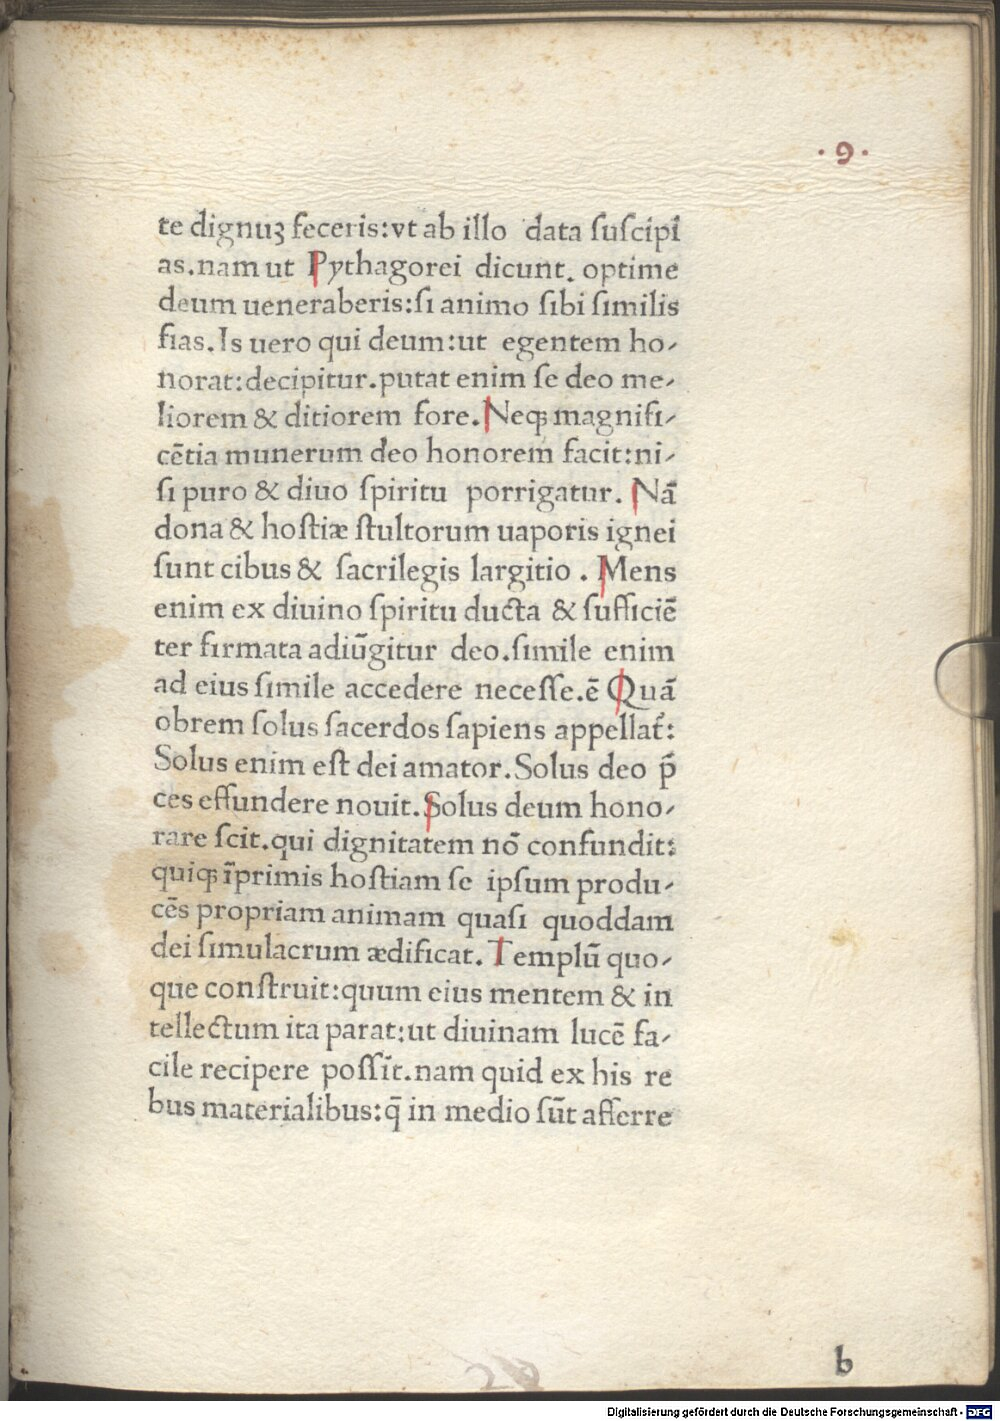 ·9·
te dignuꝫ feceris:vt ab illo data ſuſcipi
as.nam ut Pythagorei dicunt. optime
deum ueneraberis:ſi animo ſibi ſimilis
fias.Is uero qui deum:ut egentem ho-
norat:decipitur.putat enim ſe deo me-
liorem & ditiorem fore.Neqꝫ magnifi-
cētia munerum deo honorem facit:ni-
ſi puro & diuo ſpiritu porrigatur. Nā
dona & hoſtiæ ſtultorum uaporis ignei
ſunt cibus & ſacrilegis largitio . Mens
enim ex diuino ſpiritu ducta & ſufficiē
ter firmata adiūgitur deo.ſimile enim
ad eius ſimile accedere neceſſe.ē Quā
obrem ſolus ſacerdos ſapiens appellat̄:
Solus enim eſt dei amator.Solus deo p̄
ces effundere nouit.Solus deum hono-
rare ſcit.qui dignitatem nō confundit:
quiqꝫ īprimis hoſtiam ſe ipſum produ-
cēs propriam animam quaſi quoddam
dei ſimulacrum ædificat. Templū quo-
que conſtruit:quum eius mentem & in
tellectum ita parat:ut diuinam lucē fa-
cile recipere poſſīt.nam quid ex his re
bus materialibus:q̄ in medio ſūt afferre
b
Digitalisierung gefördert durch die Deutsche Forschungsgemeinschaft - DFG